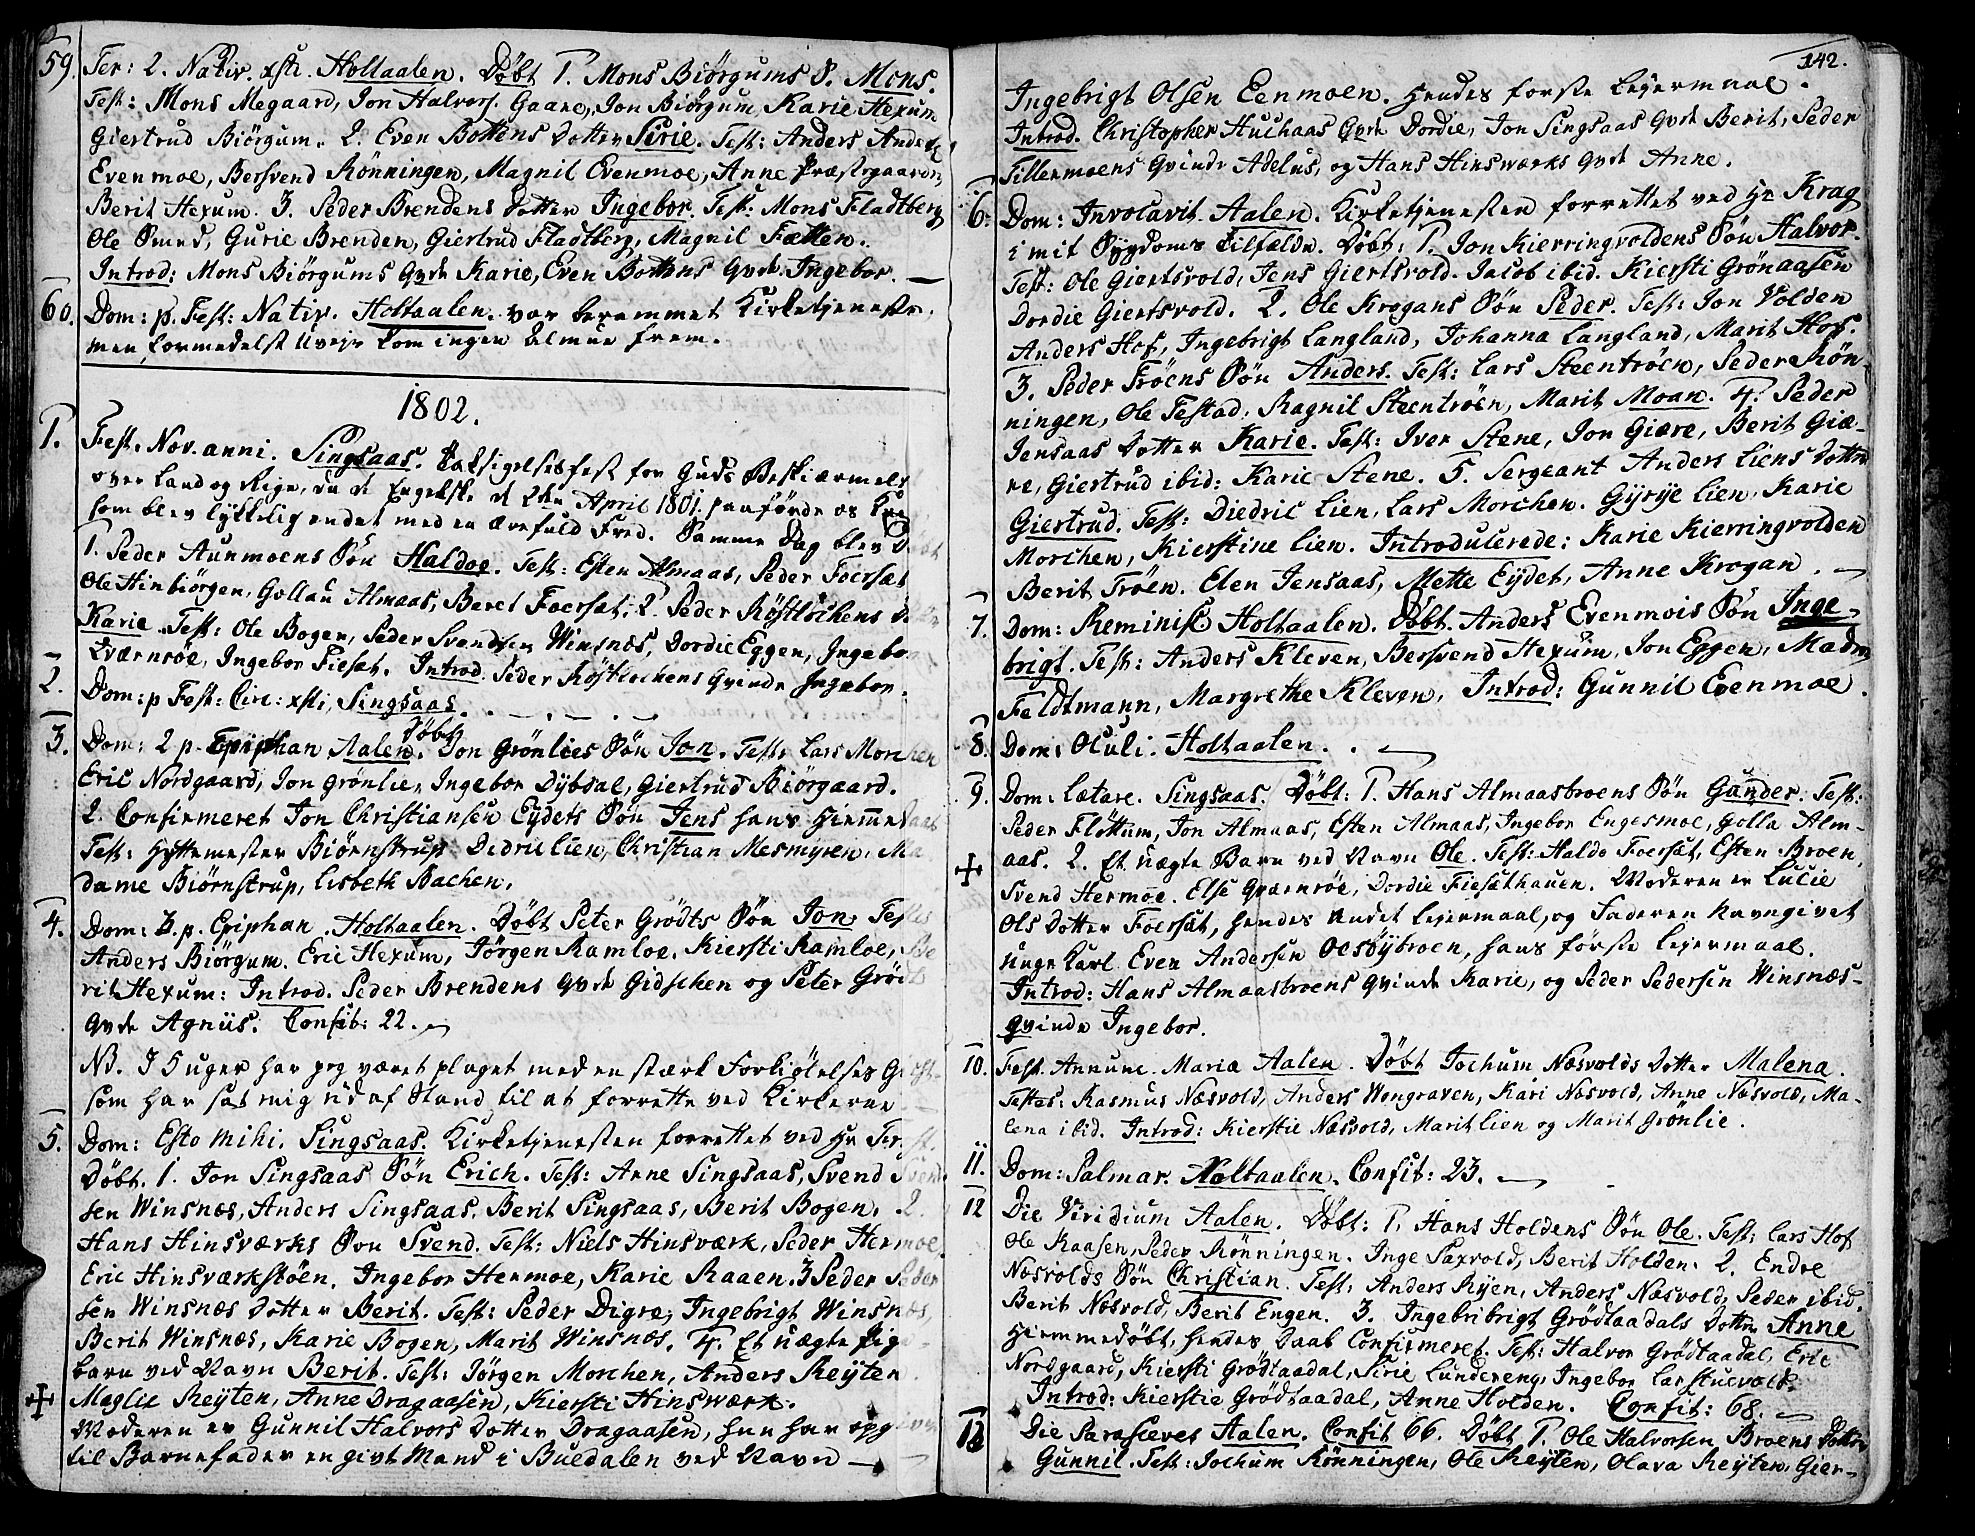 59. Fer: 2. Nativ. xsti. Holtaalen. Døbt 1. Mons Biörgums S. Mons.
Test: Mons Megaard, Jon Halvors. Gaare, Jon Biörgum, Karie Hexum
Giertrud Biörgum. 2. Even Bottens Dotter Sirie. Test: Anders Anders
Evenmoe, Bersvend Rönningen, Magnil Evenmoe, Anne Præstegaarden,
Berit Hexum. 3. Peder Brendens Dotter Ingebor. Test: Mons Fladtberg
Ole Smed, Gurie Brenden, Giertrud Fladtberg, Magnil Fætten.
Introd: Mons Biörgums Qvde Karie, Even Bottens Qvde Ingebor.
60. Dom: p. Fest: Nativ. Holtaalen. var berammet Kirketjeneste,
men formedelst Uvejr kom ingen Almue frem.
1802.
1. Fest. Nov. anni. Singsaas. Taksigelsesfest for Guds Beskiærmelse
over Land og Rige, da de Engelske d 2den April 1801. paaförde os Krig
som blev lykkelig endet med en ærefuld Fred. Samme Dag blev Døbt
1. Peder Aunmoens Søn Haldoe. Test: Esten Almaas, Peder Foersæt
Ole Hinbiörgen, Gollau Almaas, Beret Foersæt. 2. Peder Röstlochens Dotter
Karie. Test: Ole Bogen, Peder Svendsen Winsnæs, Dordie Eggen, Ingebor
Qværnröe, Ingebor Fiesæt. Introd. Peder Röstlochens Qvinde Ingebor.
2. Dom: p Fest: Circ: xsti, Singsaas.
3. Dom: 2 p. Epiphan Aalen. Døbt Jon Grönlies Søn Jon. Test: Lars Morchen
Eric Nordgaard, Jon Grönlie, Ingebor Dybdal, Giertrud Biörgaard.
2. Confirmeret Jon Christiansen Eydets Søn Jens hans Hiemmedaab
Test: Hyttemester Biörnstrup Dedric Lien, Christian Mesmyren, Ma
dame Biörnstrup, Lisbeth Bachen.
4. Dom: 3. p. Epiphan. Holtaalen. Døbt Peter Grödts Søn Jon Testes
Anders Biörgum. Eric Hexum, Jörgen Ramloe, Kiersti Ramloe, Be
rit Hexum: Introd. Peder Brendens Qvde Gidschen og Peter Grödts
Qvde Agniis. Confit: 22.
NB. I 5 uger har jeg været plaget med en stærk Forkiölelses Gigt
som har sat mig ud af Stand til at forrette ved Kirkerne
5. Dom: Esto mihi. Singsaas. Kirketjenesten forrettet ved Hr
Døbt. 1. Jon Singsaas Søn Erich. Test: Anne Singsaas, Svend Svend
sen Winsnæs, Anders Singsaas. Berit Singsaas, Berit Bogen. 2.
Hans Hinsværks Søn Svend. Test: Niels Hinsværk, Peder Hermoe.
Eric Hinsværkstöen. Ingebor Hermoe, Karie Raaen. 3 Peder Peder
sen Winsnæs Dotter Berit. Test: Peder Digre, Ingebrigt Winsnæs,
Berit Winsnæs, Karie Bogen, Marit Winsnæs. 4. Et Uægte Pige
barn ved Navn Berit. Test: Jörgen Morchen, Anders Reyten
Maglie Reyten, Anne Dragaasen, Kiersti Hinsværk.
Moderen er Gunnil Halvors Dotter Dragaasen, hun har opgivet
til Barnefader en givt Mand i Buedalen ved Navn
142.
Ingebrigt Olsen Eenmoen. Hendes første Lejermaal.
Introd. Christopher Huchaas Qvde Dordie, Jon Singsaas Qvde Berit, Peder
Tillermoens Qvinde Adelus, og Hans Hinsværks Qvde Anne.
6. Dom: Invocavit. Aalen. Kirketjenesten forrettet ved Hr Krag
i mit Sygdoms tilfælde. Døbt: 1. Jon Kierringvoldens Søn Halvor.
Test: Ole Giertsvold, Jens Giertsvold. Jacob ibid. Kiersti Grönaasen
Dordie Giertsvold. 2. Ole Krogans Søn Peder. Test: Jon Volden
Anders Hof, Ingebrigt Langland, Johanna Langland, Marit Hof.
3. Peder Tröens Søn Anders. Test: Lars Steentröen, Peder Rön
ningen, Ole Testad, Ragnil Steentröen, Marit Moan. 4. Peder
Jensaas Dotter Karie. Test: Iver Stene, Jon Giære, Berit Giæ-
re, Giertrud ibid: Karie Stene. 5. Sergeant Anders Liens Dotter
Giertrud. Test: Diedric Lien, Lars Morchen. Gyrye Lien, Karie
Morchen, Kierstine Lien. Introducerede: Karie Kierringvolden
Berit Tröen. Elen Jensaas, Mette Eydet, Anne Krogan.
7. Dom: Reminisc Holtaalen. Døbt. Anders Evenmois Søn Inge-
brigt. Test: Anders Kleven, Bersvend Hexum, Jon Eggen, Madm
Feldtmann, Margrethe Kleven, Introd: Gunnil Evenmoe.
8. Dom: Oculi. Holtaalen.
9. Dom: Lætare. Singsaas. Døbt: 1. Hans Almaasbroens Søn Gunder. Test:
Peder Flöttum, Jon Almaas, Esten Almaas, Ingebor Engesmoe, Golla Alm-
aas. 2. Et Uægte Barn ved Navn Ole. Test: Haldo Foersæt, Esten Broen,
Svend Hermoe. Else Qværnröe, Dordie Fiesæthauen. Moderen er Lucie
Ols Dotter Foersæt, hendes andet Lejermaal, og Faderen Navngivet
unge Karl Even Andersen Oesbÿbroen, hans første Lejermaal.
Introd: Hans Almaasbroens Qvinde Karie, og Peder Pedersen Winsnæs-
Qvinde Ingebor.
10. Fest. Annunc. Mariæ Aalen. Døbt Jochum Næsvolds Dotter Malena.
Testes: Rasmus Næsvold, Anders Wongraven, Kari Næsvold, Anne Næsvold, Ma-
lena ibid. Introd: Kierstie Næsvold, Marit Lien og Marit Grönlie.
11. Dom: Palmar. Holtaalen. Confit: 23.
12 Die Viridium Aalen. Døbt: 1. Hans Holdens Søn Ole. Test: Lars Hof
Ole Raasen, Peder Rönningen. Inge Saxvold, Berit Holden. 2. Endre
Næsvolds Søn Christian. Test: Anders Ryen, Anders Næsvold, Peder ibid.
Berit Næsvold, Berit Engen. 3. Ingebribrigt Grödtaadals Dotter Anne
Hiemmedøbt, hendes Daab Confirmeret. Test: Halvor Grödtaadal, Eric
Nordgaard, Kiersti Grödtaadal, Sirie Lundereng, Ingebor Larstuevold.
Introd: Kierstie Grödtaadal, Anne Holden. Confit: 68.
13 Die Parasceves Aalen. Confit 66. Døbt 1. Ole Halvorsen Broens Dotter
Gunnil. Test: Jochum Rönningen, Ole Reyten, Olava Reyten, Gier-